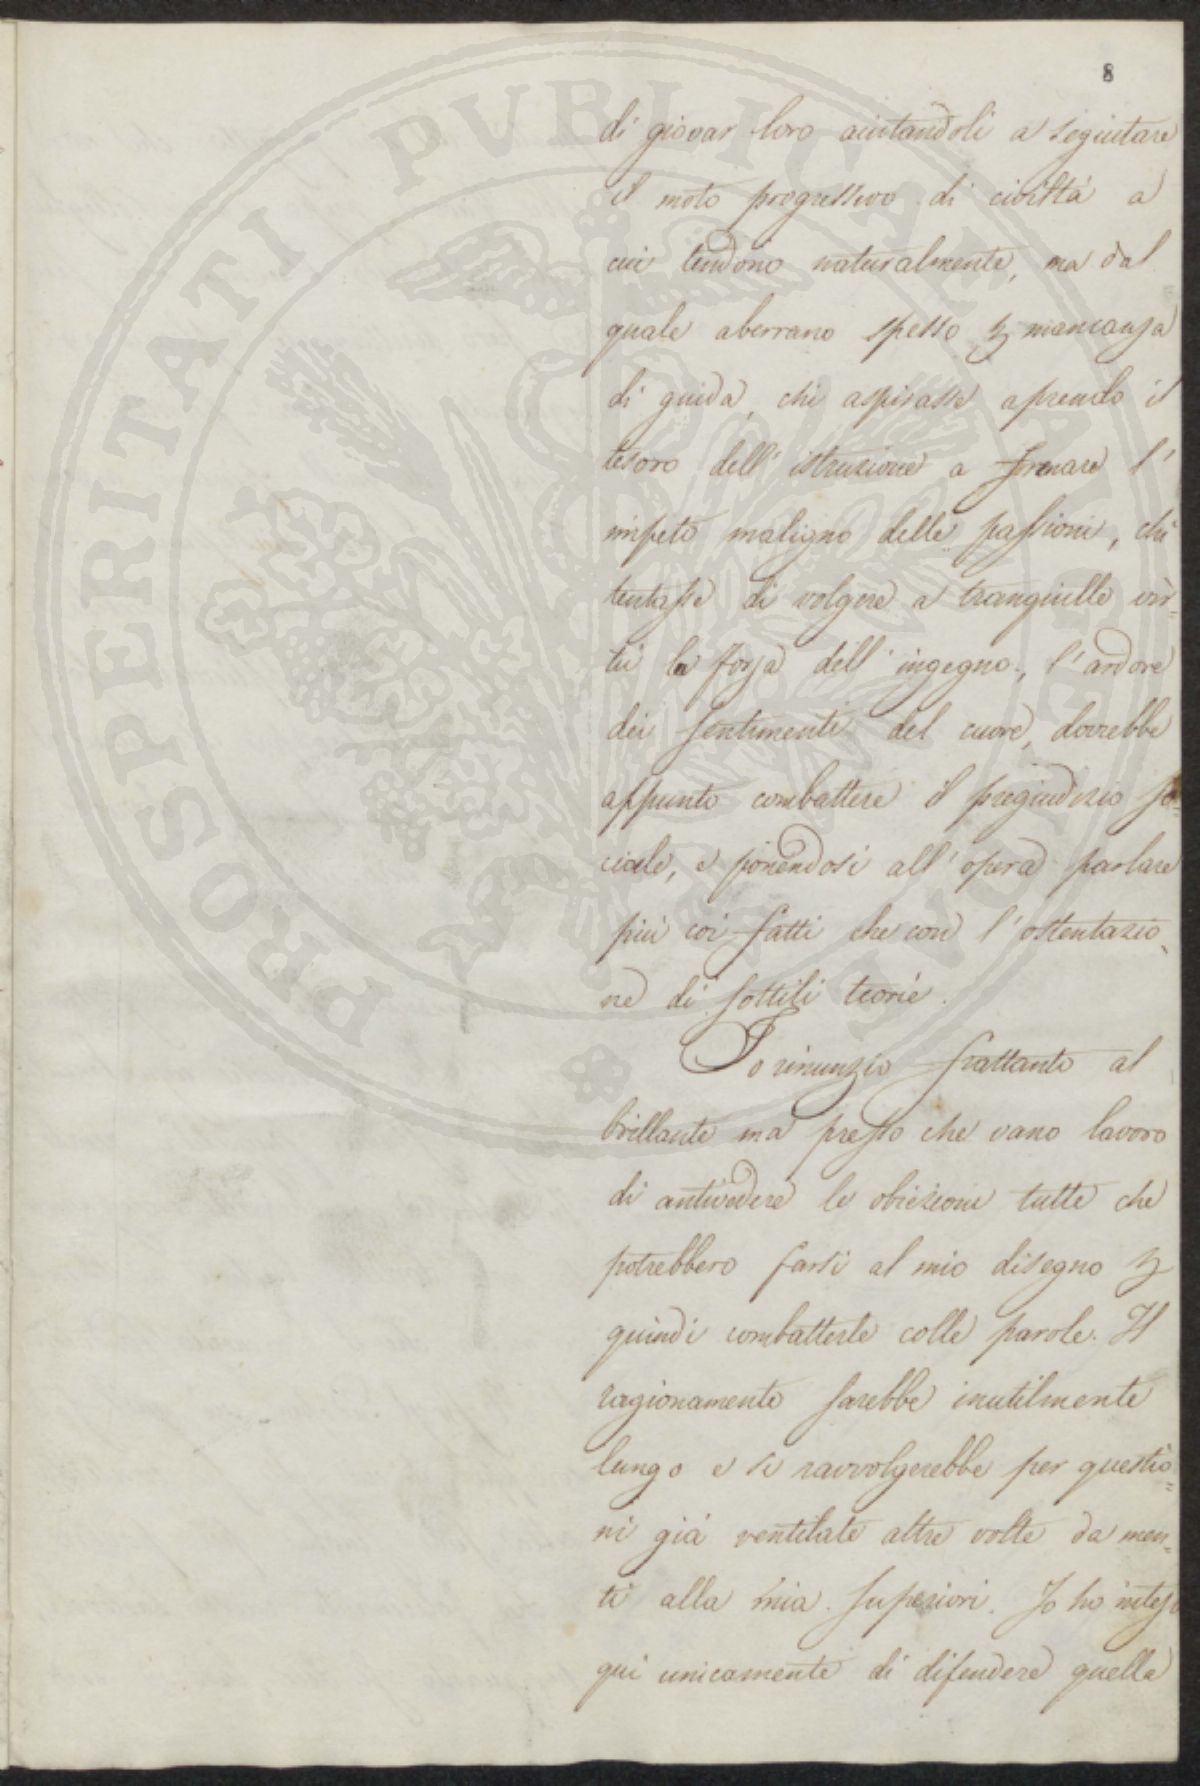 8
di giovar loro aiutandoli a seguitare
il moto progressivo di civiltà a
cui tendono naturalmente, ma dal
quale aberrano spesso p mancanza
di guida, chi aspirasse aprendo il
tesoro dell'istruzione a frenare l'
impeto maligno delle passioni, chi
tentasse di volgere a tranquille vir-
tù la forza dell'ingegno, l'ardore
dei sentimenti del cuore, dovrebbe
appunto combattere il pregiudizio so-
ciale, e ponendosi all'opera parlare
più coi fatti che con l'ostentazio-
ne di sottili teorie.
Io rinunzio frattanto al
brillante ma presso che vano lavoro
di antivedere le obiezioni tutte che
potrebbero farsi al mio disegno p
quindi combatterle colle parole. Il
ragionamento sarebbe inutilmente
lungo e si ravvolgerebbe per questio-
ni già ventilate altre volte da men-
ti alla mia superiori. Io ho inteso
qui unicamente di difendere quella
PROSPERITATI PUBLICAE AUGENDAE